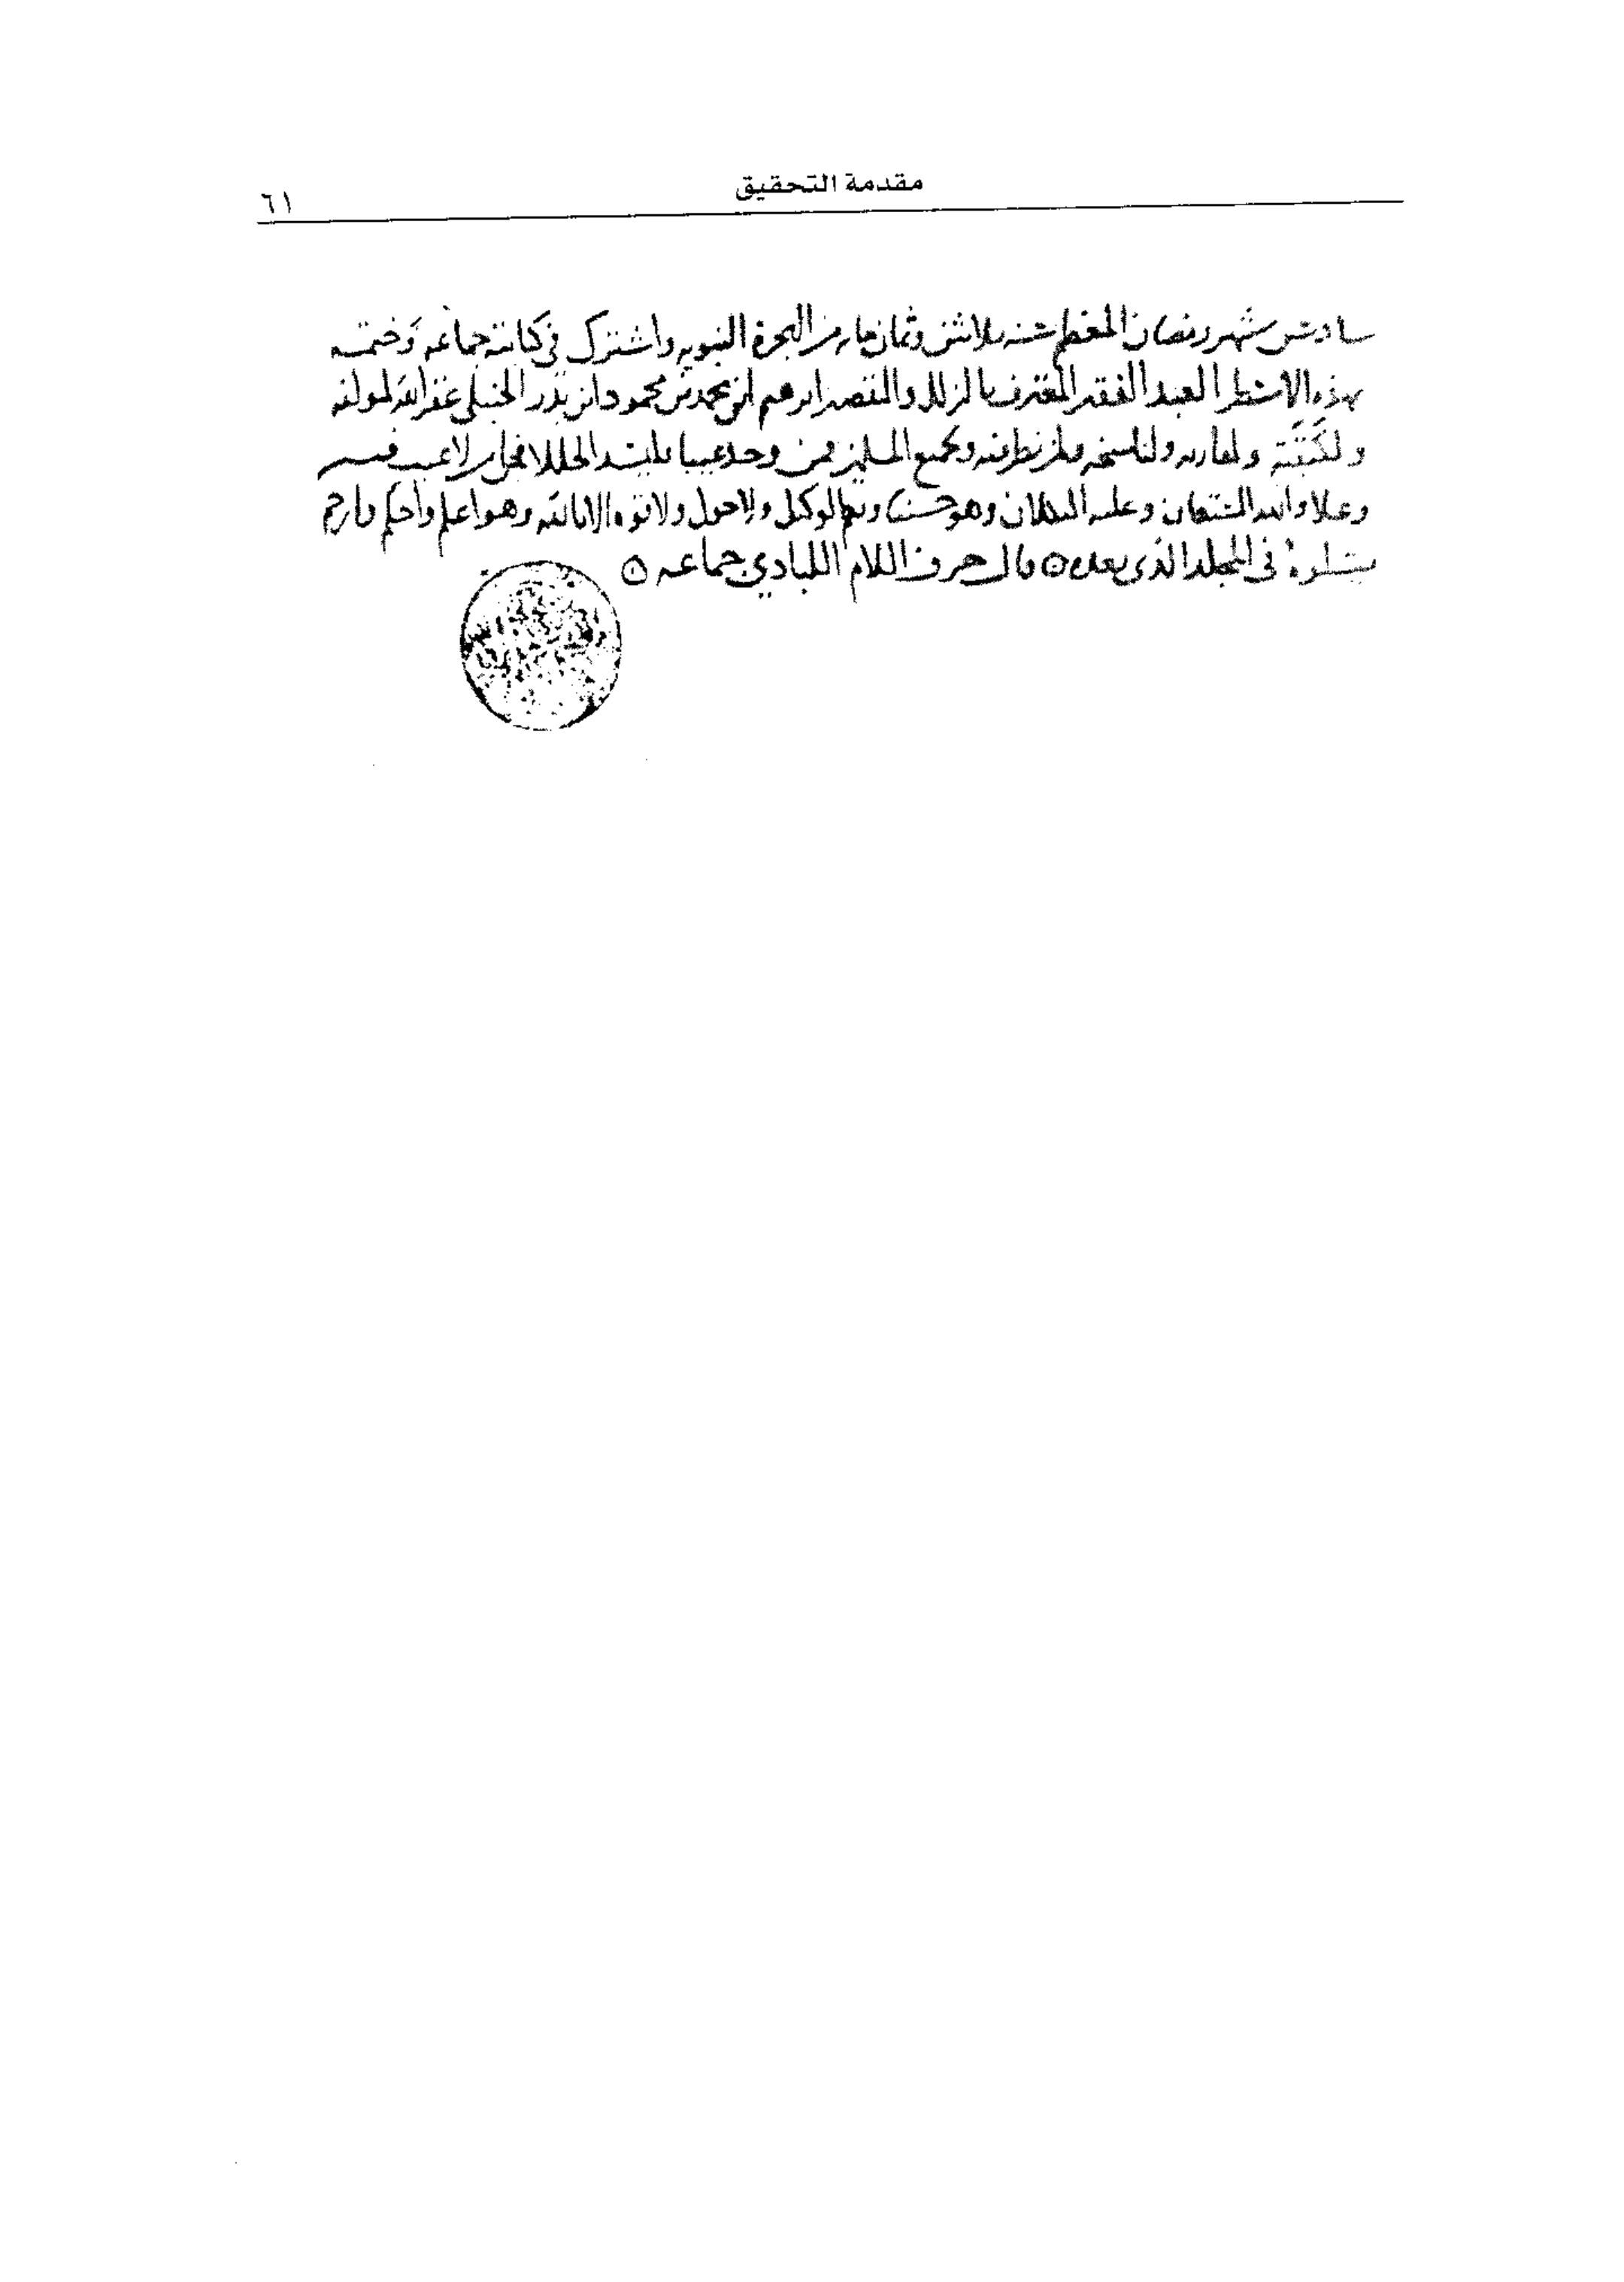 مقدمة التحقيق
٦١
سادس شهر رمضان المعظم سنه ثلاثين وثمان مايه من الهجرة النبويه واشترك فى كتابته جماعه وختمه
بهذه الاسطر العبد الفقير المعترف بالزلل والتقصير ابرهيم ابن محمد بن محمود ابن بدر الحنبلى غفر الله لمولفه
ولكتبته ولقاريه ولناسخه ولمن نظر فيه ولجميع المسلمين فمن وجد عيبا فليسد الخللا فجل من لا عيب فيه
وعلا والله المستعان وعليه التكلان وهو حسبنا ونعم الوكيل ولا حول ولا قوه الا بالله وهو اعلم واحكم وارحم
يتلوه فى المجلد الذى بعده قال حرف اللام اللبادي جماعه